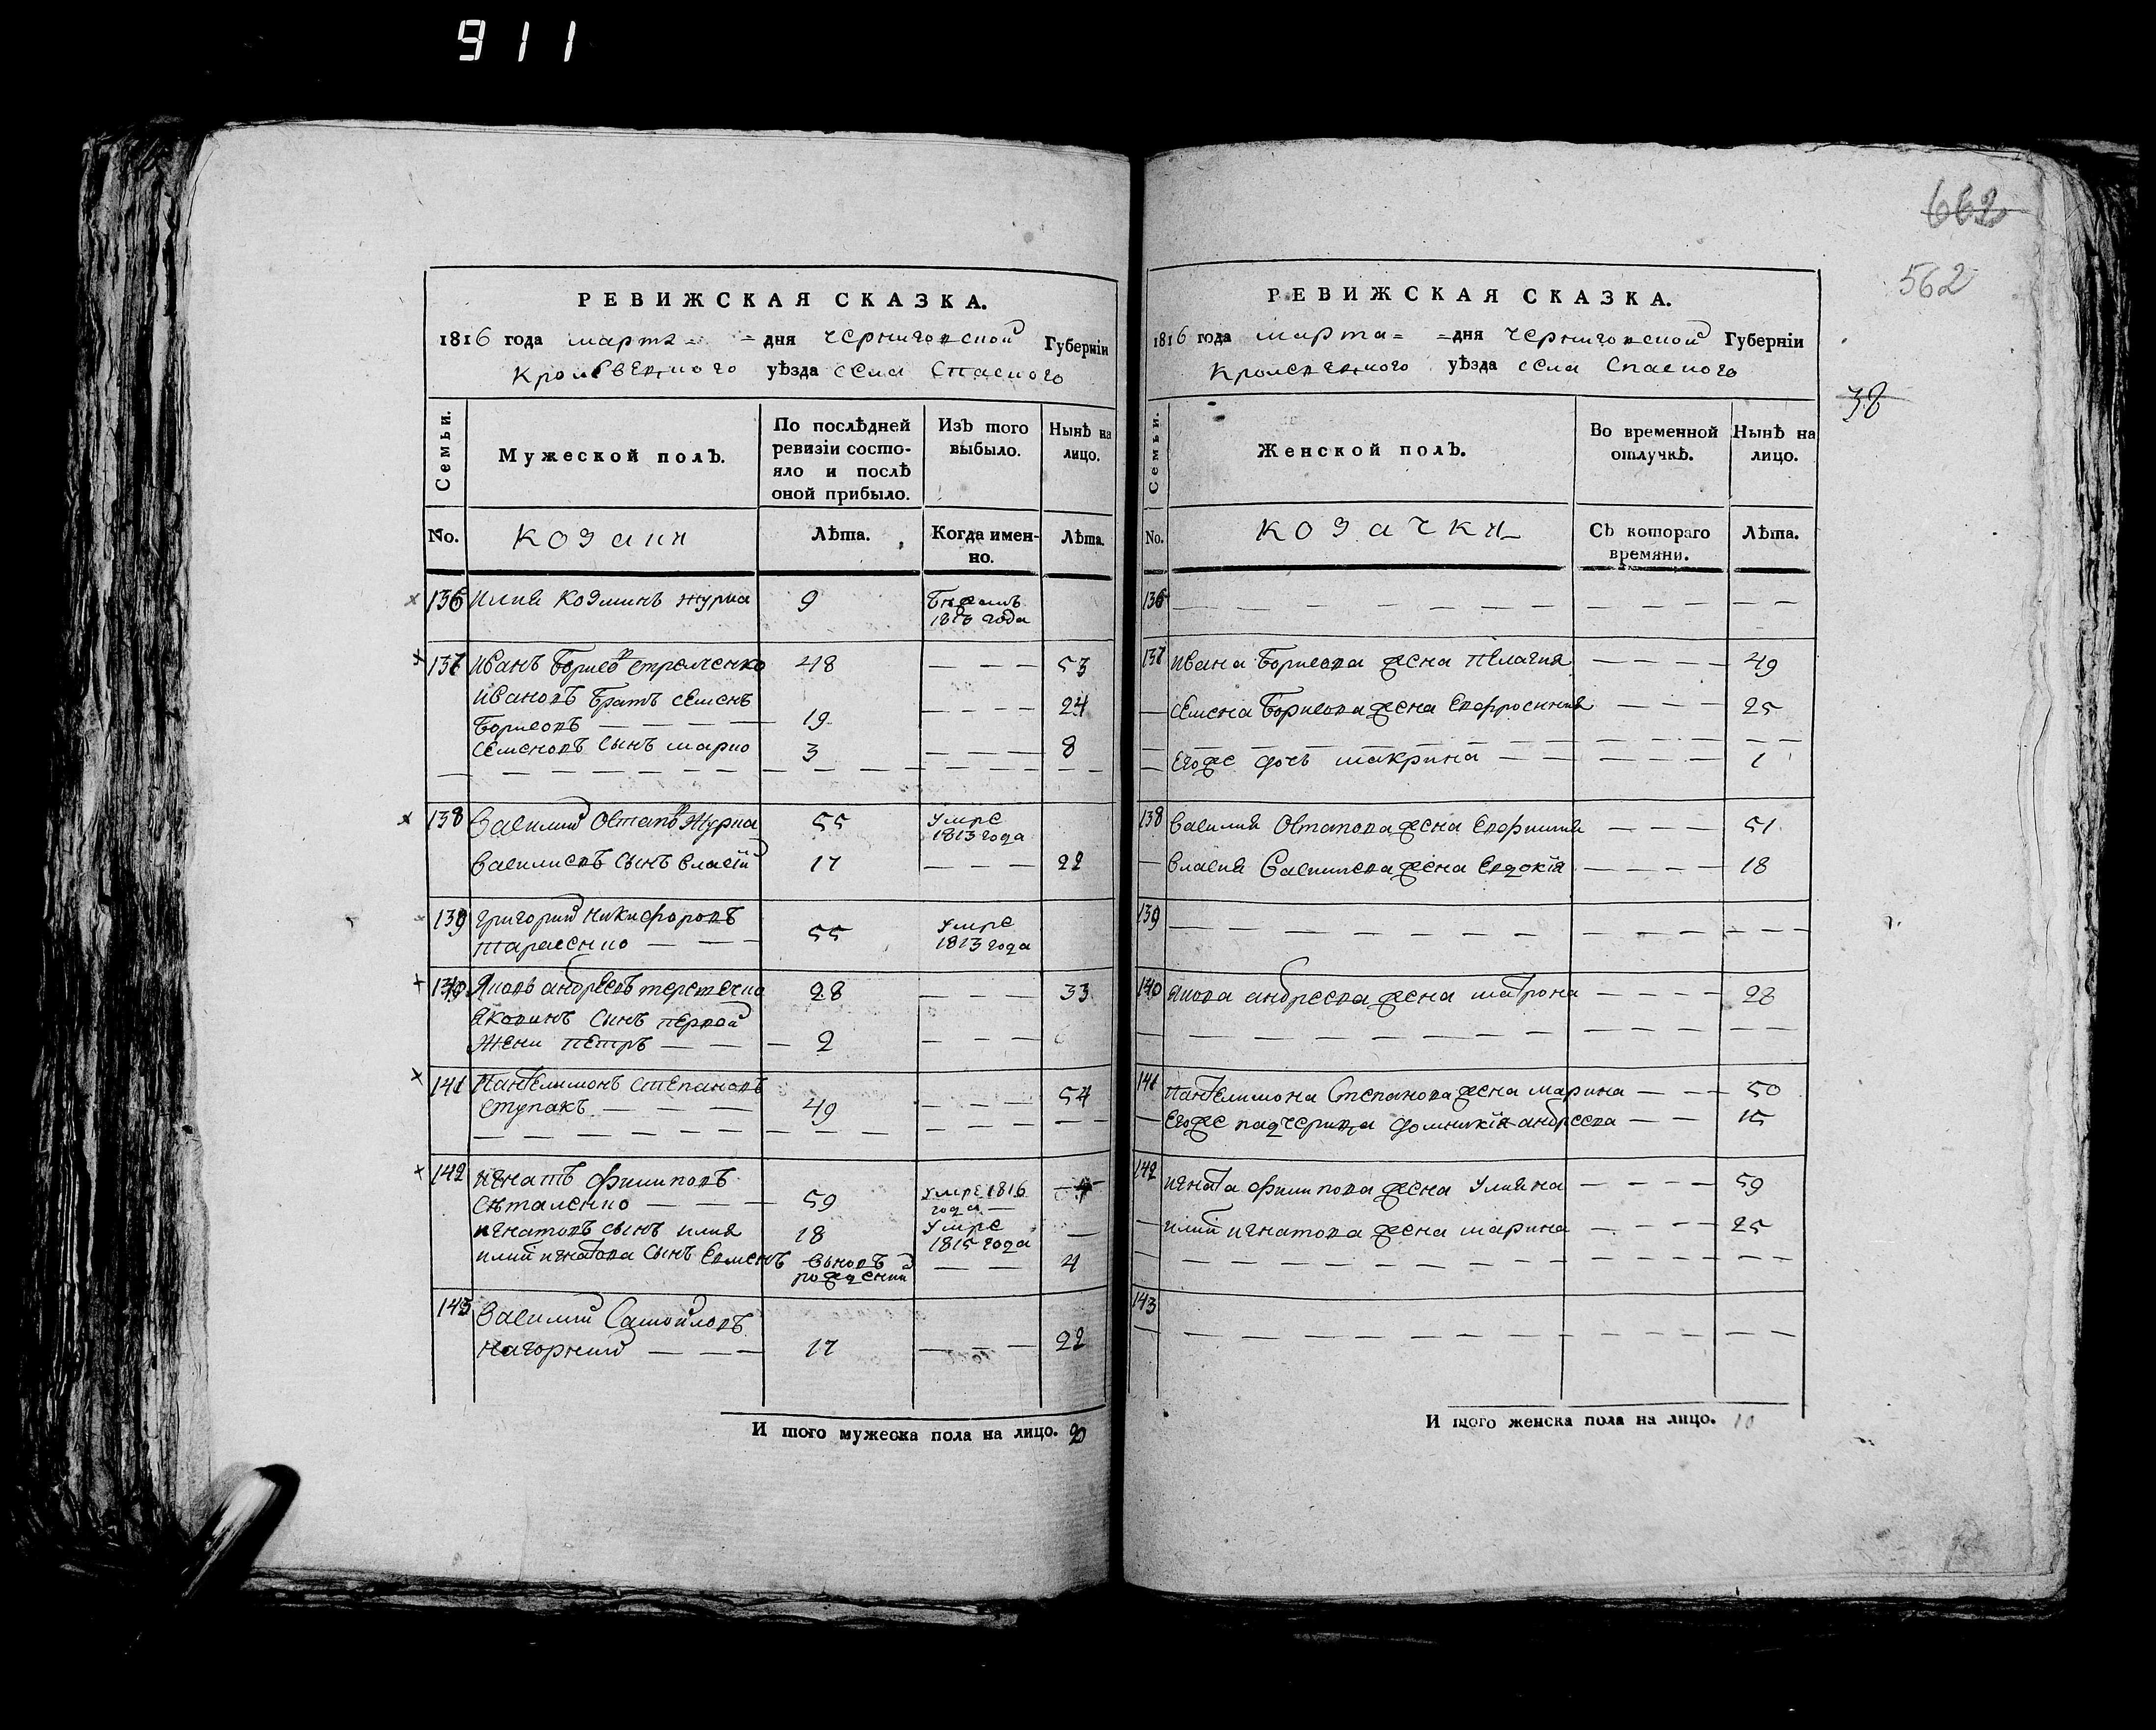 911
662
562
38
РЕВИЖСКАЯ СКАЗКА.
1816 года марта дня Черниговской Губерніи
Кролевецкого уѣзда села Спаского
Семьи.
Мужеской полъ.
По послѣдней ревизіи состо-
яло и послѣ
оной прибыло.
Изъ того
выбыло.
Нынѣ на
лицо.
No.
козаки
Лѣта.
Когда имен-
но.
Лѣта.
136 Илия Козминъ Журка 9
1813 года
137 Иванъ Борисовъ стрелченко 48 — — — 53
Ивановъ братъ Семенъ
Борисовъ — — — 19 — — — 24
Семеновъ сынъ марко 3 — — — 8
138 Василий Остаповъ Журка 55 умре
1813 года
Василиевъ сынъ Власій 17 — — — 22
139 Григорий Никифоровъ
Тарасенко — — — 55 умре
1813 года
140 Яковъ андреевъ 28 — — — 33
Яковинъ сынъ первой
жени Петръ — — — 2 — — —
141 Пантелимонъ степановъ
ступакъ — — — 49 — — — 54
142 игнатъ Филиповъ
— — — 59 умре 1816
года
игнатовъ сынъ илия 18 умре
1815 года —
илии игнатова сынъ вновъ
рожденний — — 4
143 Василий Самойловъ
нагорний — — — 17 — — — 22
И того мужеска пола на лицо.
РЕВИЖСКАЯ СКАЗКА.
1816 года марта дня Черниговской Губерніи
Кролевецкого уѣзда села Спаского
Семьи.
Женской полъ.
Во временной
отлучкѣ.
Нынѣ на
лицо.
No.
козачки
Съ котораго
времяни.
Лѣта.
136 — — — — — —
137 Ивана Борисова жена Пелагия — — — — 49
— Семена Борисова жена Евфросиния — — — 25
— Егоже дочь макрина — — — — — 1
138 Василия Остапова жена Евфимия — — — 51
— Власия Василиева жена Евдокія — — — — 18
139 — — — — — —
140 Якова андреева жена матрона — — — — 28
141 Пантелимона Степанова жена марина — — — 50
— Егоже падчерица домникія андреева — — 15
142 игната Филипова жена Улияна — — — — 59
— илии игнатова жена марина — — — — 25
143
— — — — — —
И того женска пола на лицо. 10